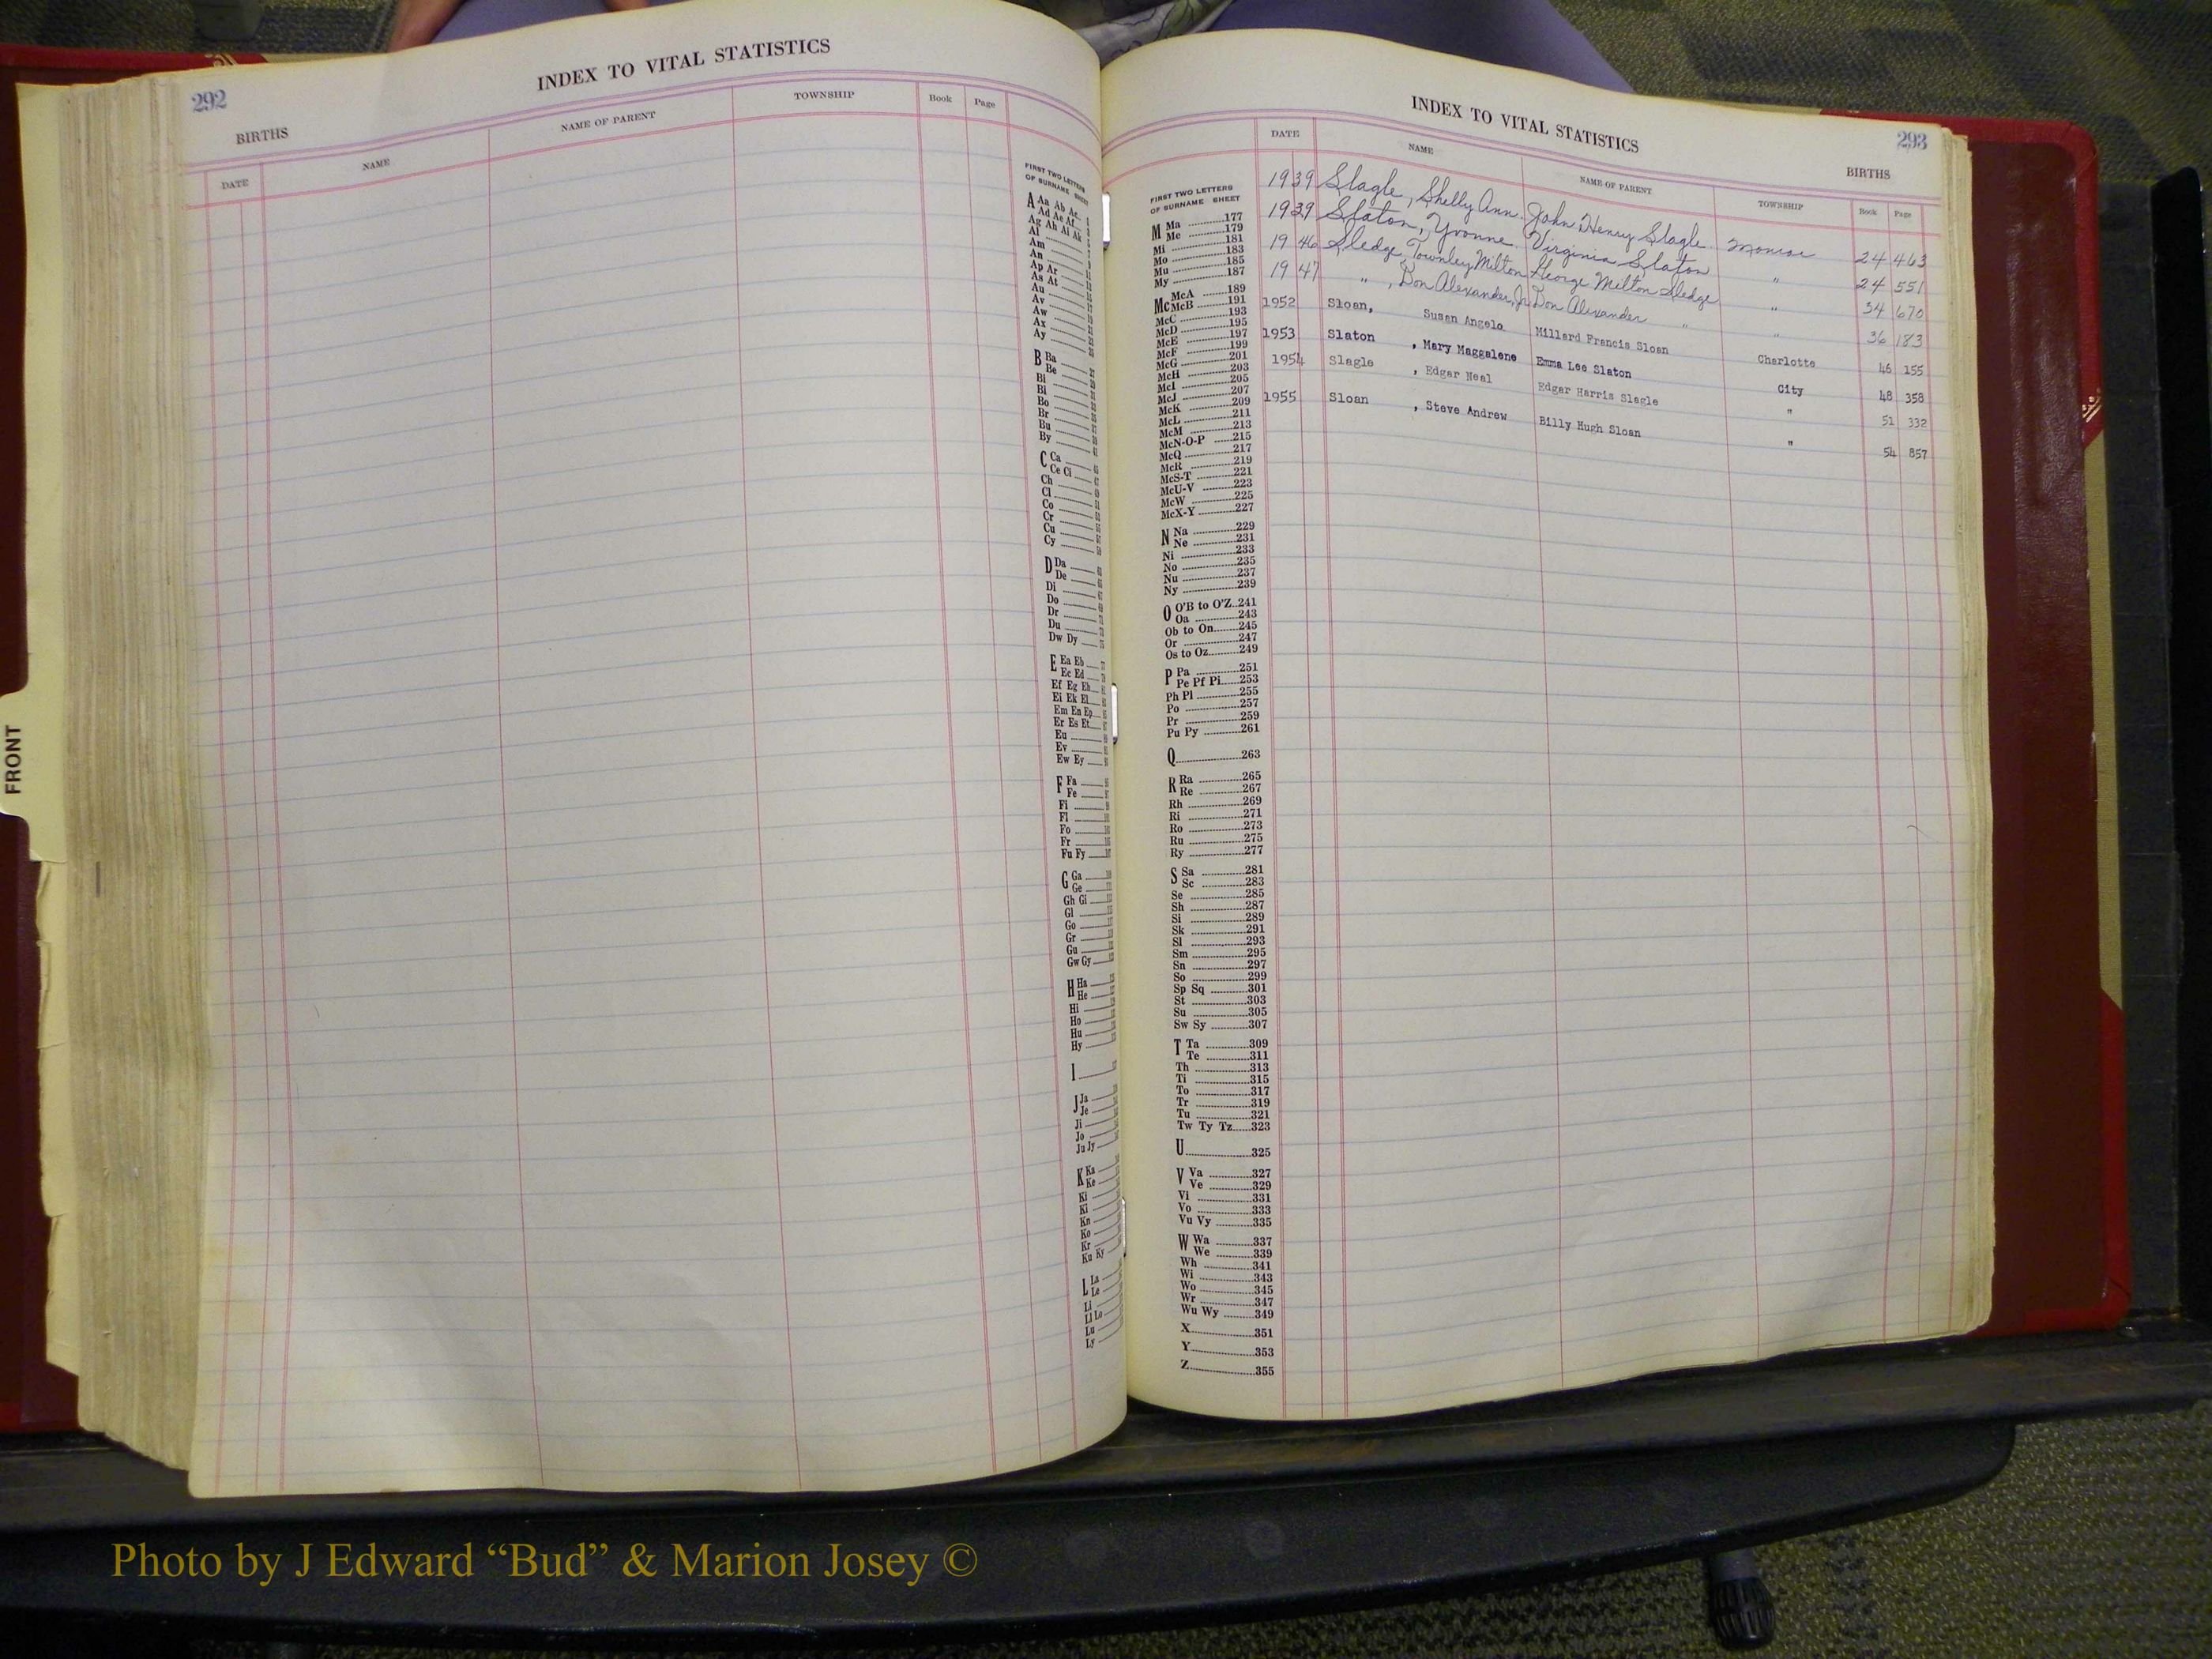 292
INDEX TO VITAL STATISTICS
BIRTHS
DATE NAME NAME OF PARENT TOWNSHIP Book Page
FIRST TWO LETTERS
OF SURNAME SHEET
A Aa Ab Ac
Ad Ae Af
Ag Ah Ai Ak
Al
Am
An
Ap Ar
As At
Au
Av
Aw
Ax
Ay
B Ba
Be
Bi
Bl
Bo
Br
Bu
By
C Ca
Ce Ci
Ch
Cl
Co
Cr
Cu
Cy
D Da
De
Di
Do
Dr
Du
Dw Dy
E Ea Eb
Ec Ed
Ef Eg Eh
Ei Ek El
Em En Ep
Er Es Et
Eu
Ev
Ew Ey
F Fa
Fe
Fi
Fl
Fo
Fr
Fu Fy
G Ga
Ge
Gh Gi
Gl
Go
Gr
Gu
Gw Gy
H Ha
He
Hi
Ho
Hu
Hy
I
J Ja
Je
Ji
Jo
Ju Jy
K Ka
Ke
Ki
Kl
Kn
Ko
Kr
Ku Ky
L La
Le
Li
Ll Lo
Lu
Ly
INDEX TO VITAL STATISTICS
293
BIRTHS
DATE NAME NAME OF PARENT TOWNSHIP Book Page
1939 Slagle, Shelly Ann John Henry Slagle Monroe 24 463
1939 Slaton, Yvonne Virginia Slaton " 24 551
1946 Sledge, Townley Milton George Milton Sledge " 34 670
1947 " , Don Alexander, Jr. Don Alexander " " 36 183
1952 Sloan, Susan Angelo Millard Francis Sloan Charlotte 46 155
1953 Slaton , Mary Maggalene Emma Lee Slaton City 48 358
1954 Slagle , Edgar Neal Edgar Harris Slagle " 51 332
1955 Sloan , Steve Andrew Billy Hugh Sloan " 54 857
FIRST TWO LETTERS
OF SURNAME SHEET
M Ma 177
Me 179
Mi 181
Mo 183
Mu 185
My 187
Mc McA 189
McB 191
McC 193
McD 195
McE 197
McF 199
McG 201
McH 203
McI 205
McJ 207
McK 209
McL 211
McM 213
McN-O-P 215
McQ 217
McR 219
McS-T 221
McU-V 223
McW 225
McX-Y 227
N Na 229
Ne 231
Ni 233
No 235
Nu 237
Ny 239
O O'B to O'Z 241
Oa 243
Ob to On 245
Or 247
Os to Oz 249
P Pa 251
Pe Pf Pi 253
Ph Pl 255
Po 257
Pr 259
Pu Py 261
Q 263
R Ra 265
Re 267
Rh 269
Ri 271
Ro 273
Ru 275
Ry 277
S Sa 281
Sc 283
Se 285
Sh 287
Si 289
Sk 291
Sl 293
Sm 295
Sn 297
So 299
Sp Sq 301
St 303
Su 305
Sw Sy 307
T Ta 309
Te 311
Th 313
Ti 315
To 317
Tr 319
Tu 321
Tw Ty Tz 323
U 325
V Va 327
Ve 329
Vi 331
Vo 333
Vu Vy 335
W Wa 337
We 339
Wh 341
Wi 343
Wo 345
Wr 347
Wu Wy 349
X 351
Y 353
Z 355
FRONT
Photo by J Edward “Bud” & Marion Josey ©